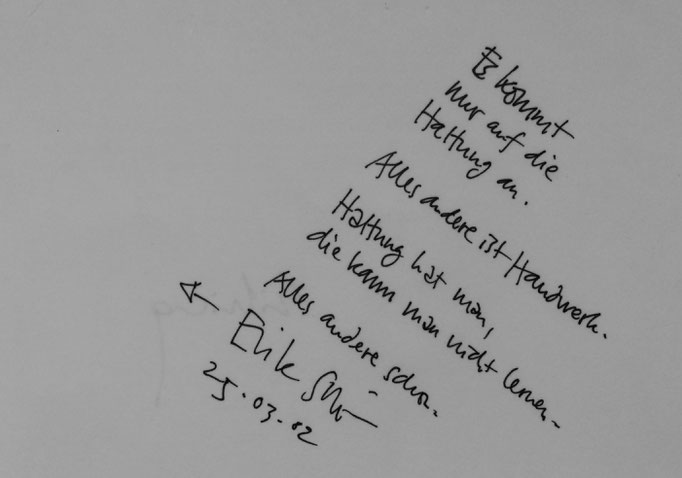 Es kommt
nur auf die
Haltung an.
Alles andere ist Handwerk.
Haltung hat man,
die kann man nicht lernen.
Alles andere schon.
Erik
25.03.02